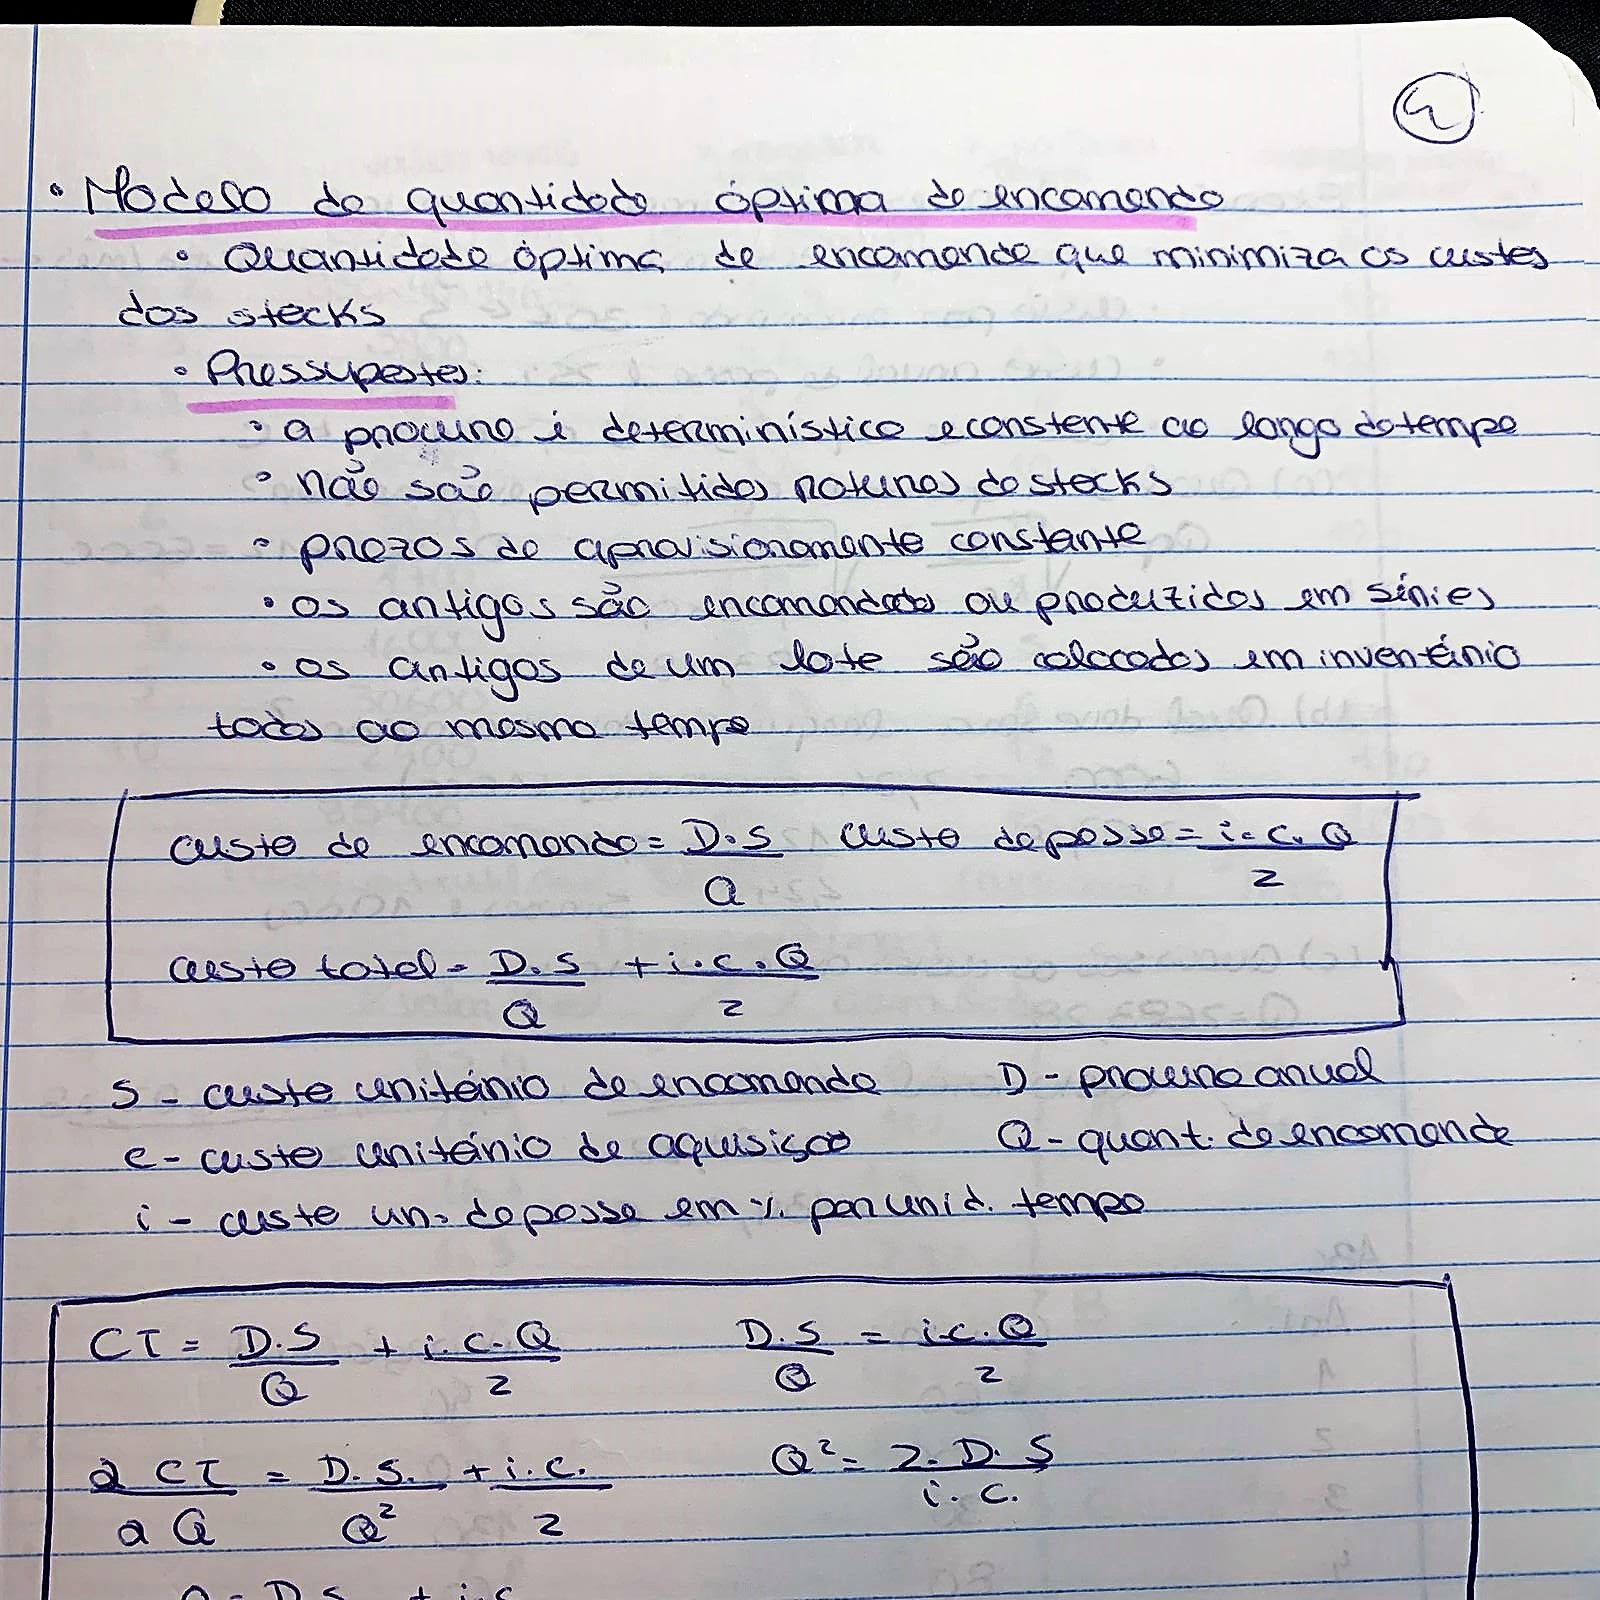 4
• Modelo de quantidade óptima de encomenda
• Quantidade óptima de encomenda que minimiza os custos
dos stocks
• Pressupostos:
• a procura é determinística e constante ao longo do tempo
• não são permitidas roturas de stocks
• prazos de aprovisionamento constante
• os artigos são encomendados ou produzidos em séries
• os artigos de um lote são colocados em inventário
todos ao mesmo tempo
custo de encomenda = D.S / Q custo de posse = i.c.Q / 2
custo total = D.S / Q + i.c.Q / 2
S - custo unitário de encomenda D - procura anual
c - custo unitário de aquisição Q - quant. de encomenda
i - custo un. de posse em % por unid. tempo
CT = D.S / Q + i.c.Q / 2 D.S / Q = i.c.Q / 2
∂ CT / ∂ Q = D.S. / Q² + i.c. / 2 Q² = 2.D.S / i.c.
0 = D.S + i.c